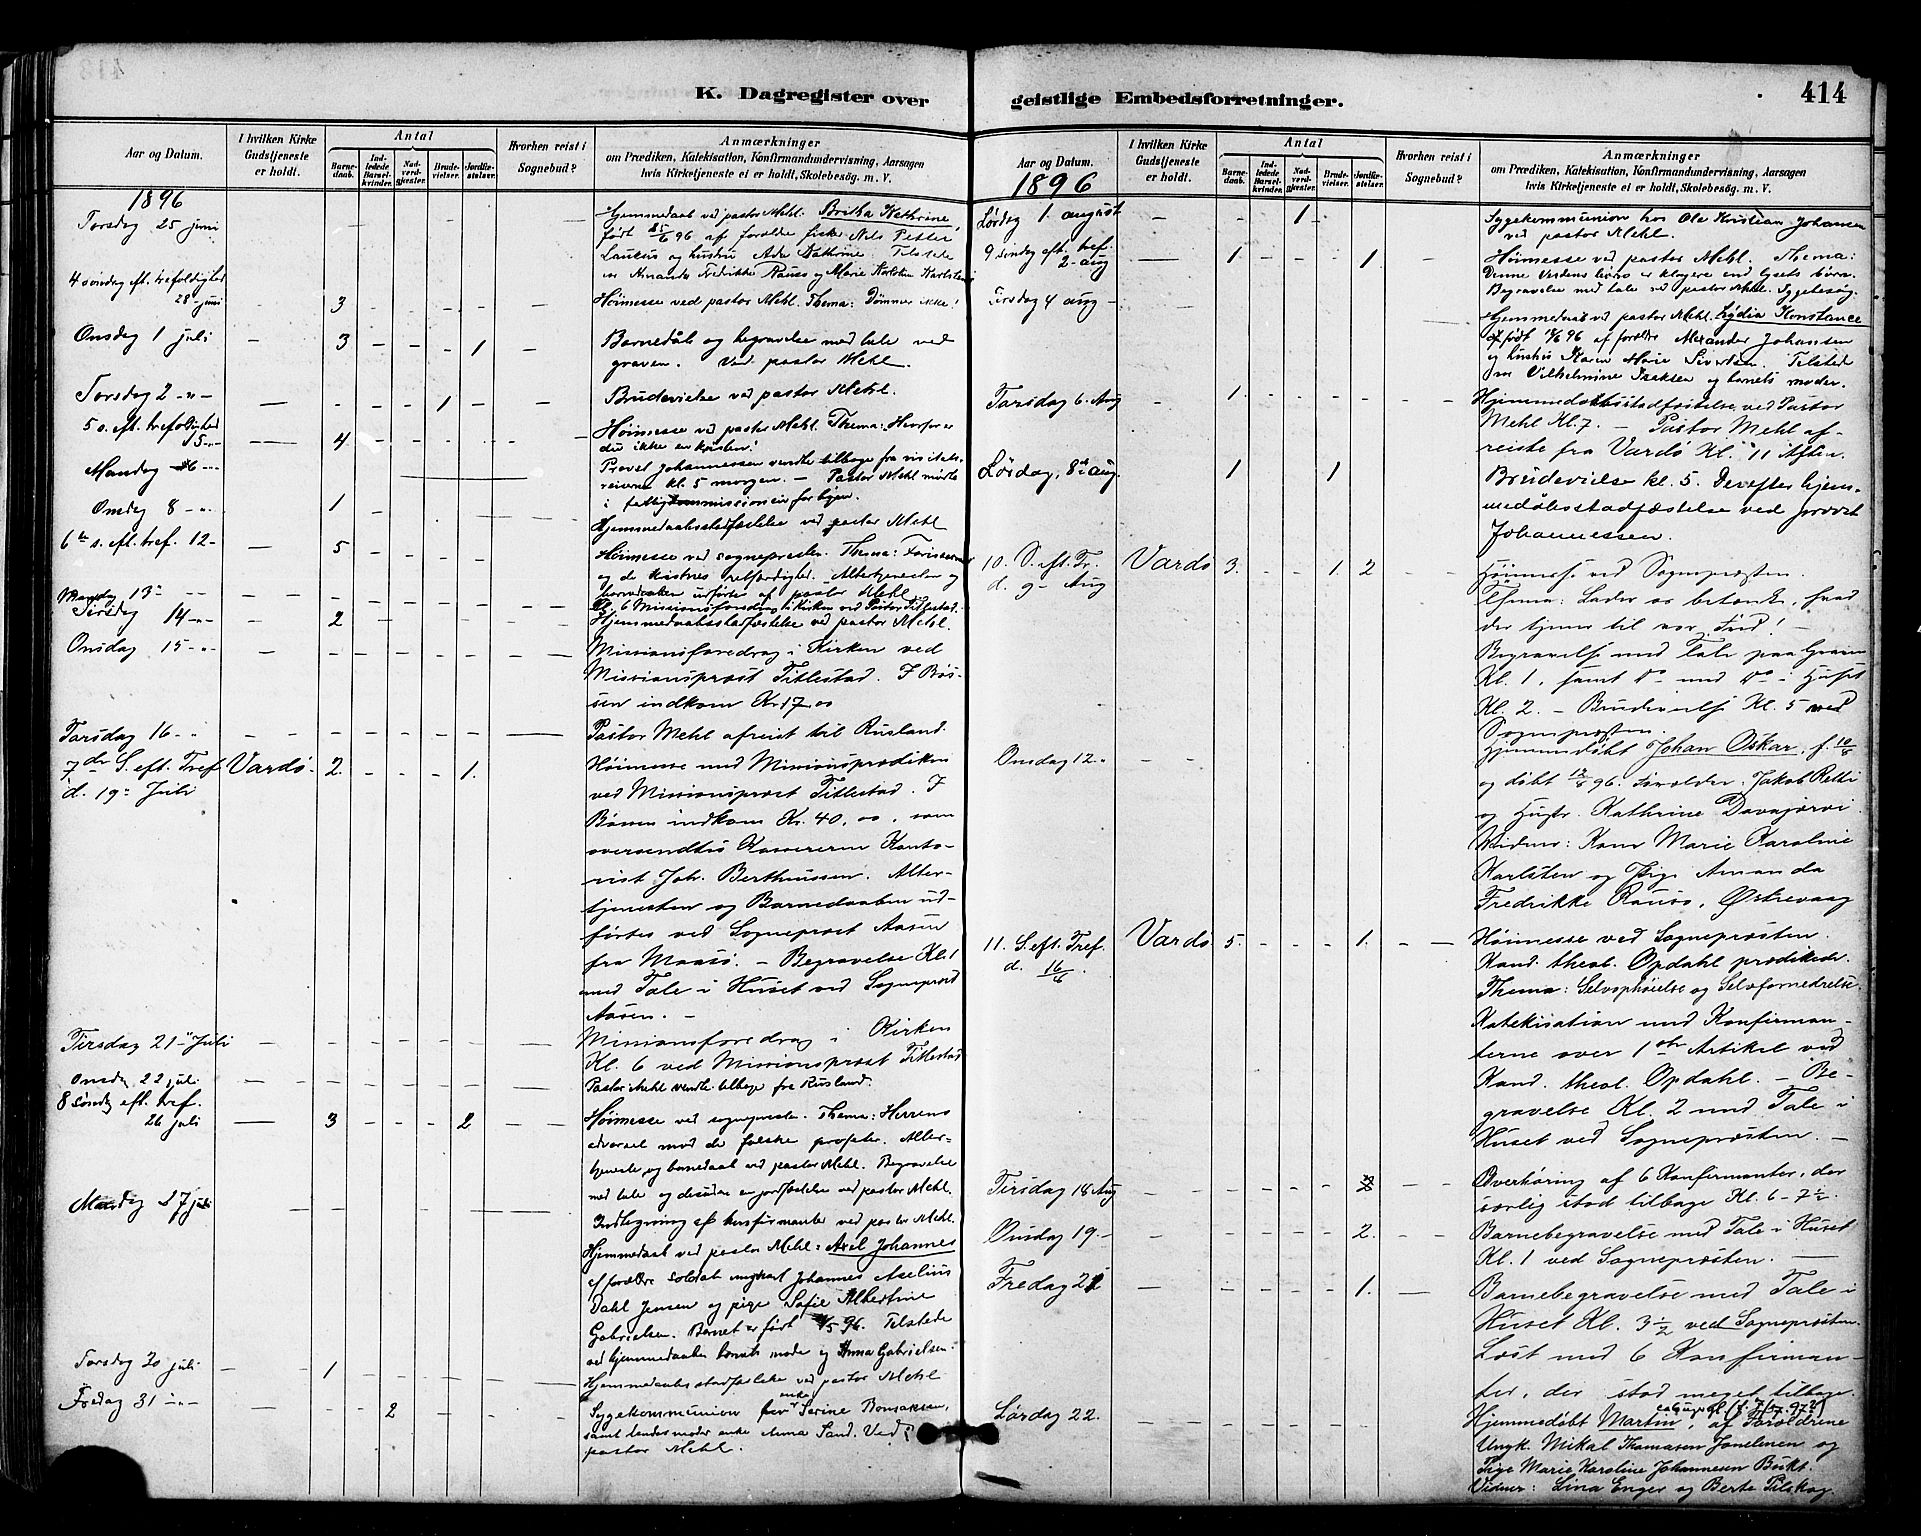 K. Dagregister over
Aar og Datum.
I hvilken Kirke Gudstjeneste er holdt.
Antal
Barnedaab.
Indledede Barselkvinder.
Nadverdgjester.
Brudevielser.
Jordfæstelser.
Hvorhen reist i Sognebud?
Anmærkninger
om Prædiken, Katekisation, Konfirmandundervisning, Aarsagen
hvis Kirketjeneste ei er holdt, Skolebesøg. m. V.
1896
Torsdag 25 juni
Hjemmedaab ved pastor Mehl. Britha Kathrine,
født /6 96 af forældre fisker Nils Petter
og hustru Ada Kathrine. Tilstede
Amanda Fredrikke Rauso og Marie Karoline Karlsten
4 søndag eft. trefoldighed
28 juni 3 - - - -
Høimesse ved pastor Mehl. Thema: Dømmer ikke!
Onsdag 1 juli - 3 - - - 1 -
Barnedåb og begravelse med tale ved
graven. Ved pastor Mehl.
Torsdag 2 -"- — - - - 1 - -
Brudevielse ved pastor Mehl.
5 s. eft. trefoldighed
5 -"- — 4 - - - - -
Høimesse ved pastor Mehl. Thema: Hvorfor er
du ikke en kristen!
Mandag 6 -"-
Provst Johannessen vendte tilbage fra visitats-
reiserne kl. 5 morgen. — Pastor Mehl mødte
i fattigkommissionen for byen.
Onsdag 8 -"- 1 - - - - -
Hjemmedaabsstadfæstelse ved pastor Mehl
6te s. eft. tref. 12- — 5 - - - - -
Høimesse ved sognepresten. Thema:
og de kristnes retfærdighed. Altertjenesten og
barnedaaben udførtes af pastor Mehl
Mandag 13-
Kl. 6 Missionsforedrag i Kirken ved Pastor Titlestad.
Tirsdag 14 -"- - 2 - - - - -
Hjemmedaabsstadfæstelse ved pastor Mehl.
Onsdag 15 -"- - - - - - - -
Missionsforedrag i Kirken ved
Missionsprest Titlestad. I Bøs-
sen indkom Kr. 17.00
Torsdag 16 -"- - - - - - - —
Pastor Mehl afreist til Rusland.
7de S. eft. Tref. Vardø. 2. - - - 1. - —
d. 19de Juli
Høimesse med Missionsprædiken
ved Missionsprest Titlestad. I
Bøssen indkom Kr. 40,00, som
oversendtes Kassereren Konto-
rist Joh. Berthussen. Alter-
tjenesten og Barnedaaben ud-
førtes ved Sogneprest Aasen
fra Maasø. — Begravelse Kl. 1
med Tale i Huset ved Sogneprest
Aasen. —
Tirsdag 21de Juli - - - - - - -
Missionsforedrag i Kirken
Kl. 6 ved Missionsprest Titlestad
Onsdag 22 juli — - - - - - -
Pastor Mehl vendte tilbage fra Rusland.
8 søndag eft. tref.
26 juli — 3 - - - 2 - -
Høimesse ved sognepresten. Thema: Herrens
advarsel mod de falske profeter. Alter-
tjeneste og barnedaab ved pastor Mehl. Begravelse
med tale og desuden en jordfæstelse ved pastor Mehl.
Mandag 27 juli
Indlegning af konfirmanter ved pastor Mehl.
Hjemmedaab ved pastor Mehl: Axel Johannes
af forældre soldat ungkarl Johannes Axelius
Dahl Jensen og pige Sofie Albertine
Gabrielsen. Barnet er født /5 96. Tilstede
ved hjemmedaaben barnets moder og Anna Gabrielsen.
Torsdag 30 juli — 1 - - - -
Hjemmedaabsstadfæstelse ved pastor Mehl
Fredag 31 -"- - - - 2 - - -
Sygekommunion for enke Serine Bomaksen,
samt hendes moder enke Anna Sand. Ved
pastor Mehl.
geistlige Embedsforretninger.
414
Aar og Datum.
I hvilken Kirke Gudstjeneste er holdt.
Antal
Barnedaab.
Indledede Barselkvinder.
Nadverdgjester.
Brudevielser.
Jordfæstelser.
Hvorhen reist i Sognebud?
Anmærkninger
om Prædiken, Katekisation, Konfirmandundervisning, Aarsagen
hvis Kirketjeneste ei er holdt, Skolebesøg. m. V.
1896
Lørdag 1. august — - - 1 - - -
Sygekommunion hos Ole Kristian Johansen
ved pastor Mehl.
9 søndag eft. tref.
2- aug — 1 - - - 1 -
Høimesse ved pastor Mehl. Thema:
Denne Verdens børn er klogere end lysets børn.
Begravelse med tale ved pastor Mehl. Sygebesøg.
Tirsdag 4 aug -
Hjemmedaab ved pastor Mehl. Lydia Konstance
født /6 96 af forældre Alexander Johansen
og hustru Karen Marie Sivertsen. Tilstede
var Vilhelmine Isaksen og barnets moder.
Torsdag 6. Aug - 1. - - - - - -
Hjemmedaabsstadfæstelse ved Pastor
Mehl Kl. 7. — Pastor Mehl af-
reiste fra Vardø Kl. 11 Aften.
Lørdag, 8de aug. 1 - - 1 -
Brudevielse kl. 5. Derefter hjem-
medåbsstadfæstelse ved provst
Johannessen.
10. S. eft. Tr. Vardø 3. - - 1. 2 - -
d. 9- Aug
Høimesse ved Sognepræsten
Thema: Lader os betænke, hvad
der tjener til vor Fred! —
Begravelse med Tale paa Graven
Kl. 1, samt do med do i Huset
Kl. 2. — Brudevielse Kl. 5 ved
Sognepræsten.
Onsdag 12. - -
Hjemmedøbt Johan Oskar, f. 10/8
og døbt 12/8 96. Forældre: Jakob Retti
og Hustr. Kathrine Davajærvi
Vidner: Kone Marie Karoline
Karlsten og Pige Amanda
Fredrikke Rauso, Østrevaag
11. S. eft. Tref. Vardø 5. - - - 1. - —
d. 16/8.
Høimesse ved Sognepræsten.
Kand. theol. Opdahl prædikede.
Thema: Selvophøielse og Selvfornedrelse.
Katekisation med Konfirman-
terne over 1ste Artikel ved
Kand. theol. Opdahl. — Be-
gravelse Kl. 2 med Tale i
Huset ved Sognepræsten. —
Tirsdag 18 Aug - - - - - - -
Overhøring af 6 Konfirmanter, der
særlig stod tilbage Kl. 6 - 7½.
Onsdag 19. - - - - - - 2. - -
Barnebegravelse med Tale i Huset
Kl. 1 ved Sognepræsten. —
Fredag 21 — - - - - 1. —
Barnebegravelse med Tale i
Huset Kl. 3½ ved Sognepræsten.
Læst med 6 Konfirman-
ter, der stod meget tilbage.
Lørdag 22. - - - - - - -
Hjemmedøbt Martin, af Forældrene
Ungk. Mikal Thomasen Jonelenen og
Pige Marie Karoline Johannesen Bukt.
Vidner: Lina Enger og Berte Tilskog.